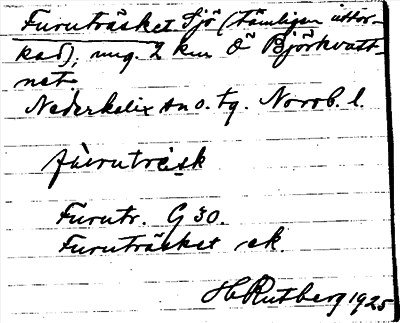 Furuträsket Sjö (tämligen uttor-
kad), ung. 2 km Ö Björkvatt-
net
Nederkalix sn o. tg. Norrb. l.
furutræsk
Furutr. G 30.
Furuträsket ek.
H Rutberg 1925